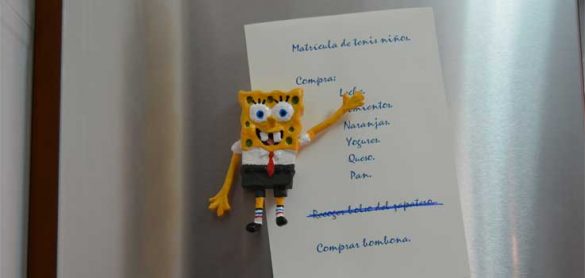 Matrícula de tenis niños.
Compra:
Leche.
Pimientos.
Naranjas.
Yogures.
Queso.
Pan.
Recoger bolso del zapatero.
Comprar bombona.